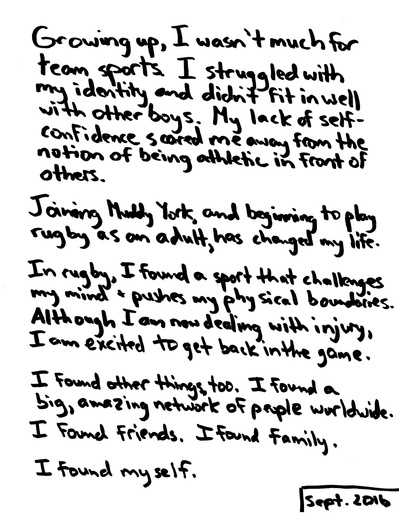 Growing up, I wasn't much for
team sports. I struggled with
my identity and didn't fit in well
with other boys. My lack of self-
confidence scared me away from the
notion of being athletic in front of
others.
Joining Muddy York, and beginning to play
rugby as an adult, has changed my life.
In rugby, I found a sport that challenges
my mind + pushes my physical boundaries.
Although I am now dealing with injury,
I am excited to get back in the game.
I found other things, too. I found a
big, amazing network of people worldwide.
I found friends. I found family.
I found myself.
Sept. 2016